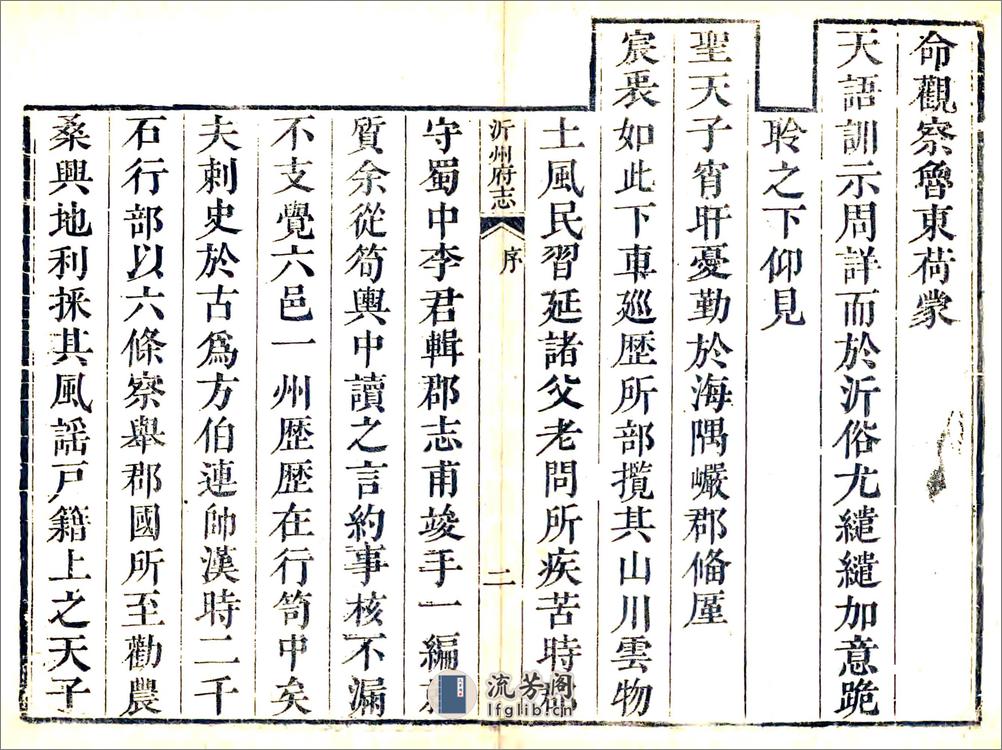 命觀察魯東荷蒙
天語訓示周詳而於沂俗尤繾繾加意跪
聆之下仰見
聖天子宵旰憂勤於海隅巗郡俻厪
宸衷如此下車廵歴所部攬其山川雲物
土風民習延諸父老問所疾苦時
沂州府志 序 二
守蜀中李君輯郡志甫竣手一編
質余從筍輿中讀之言約事核不漏
不支覺六邑一州歴歴在行笥中矣
夫刺史於古爲方伯連帥漢時二千
石行部以六條察舉郡國所至勸農
桑興地利採其風謡戸籍上之天子
流芳阁
lfglib.cn